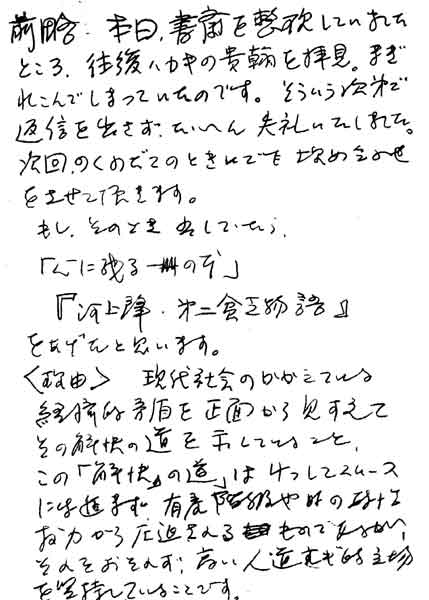 前略 本日、書斎を整理していました
ところ、往復ハガキの貴翰を拝見。まぎ
れこんでしまっていたのです。そういう次第で
返信を出さず、たいへん失礼いたしました。
次回のくわだてのときにでも埋め合わせ
をさせて頂きます。
もし、そのとき出していたら、
「心に残る一冊の本」
『河上肇・第二貧乏物語』
をあげたと思います。
〈理由〉 現代社会のかかえている
経済的矛盾を正面から見すえて
その解決の道を示していること、
この「解決」の道」はけっしてスムース
には進まず 有産階級や時の政治
権力から圧迫される ものであるが、
それをおそれず、高い人道主義的立場
を堅持していることです。